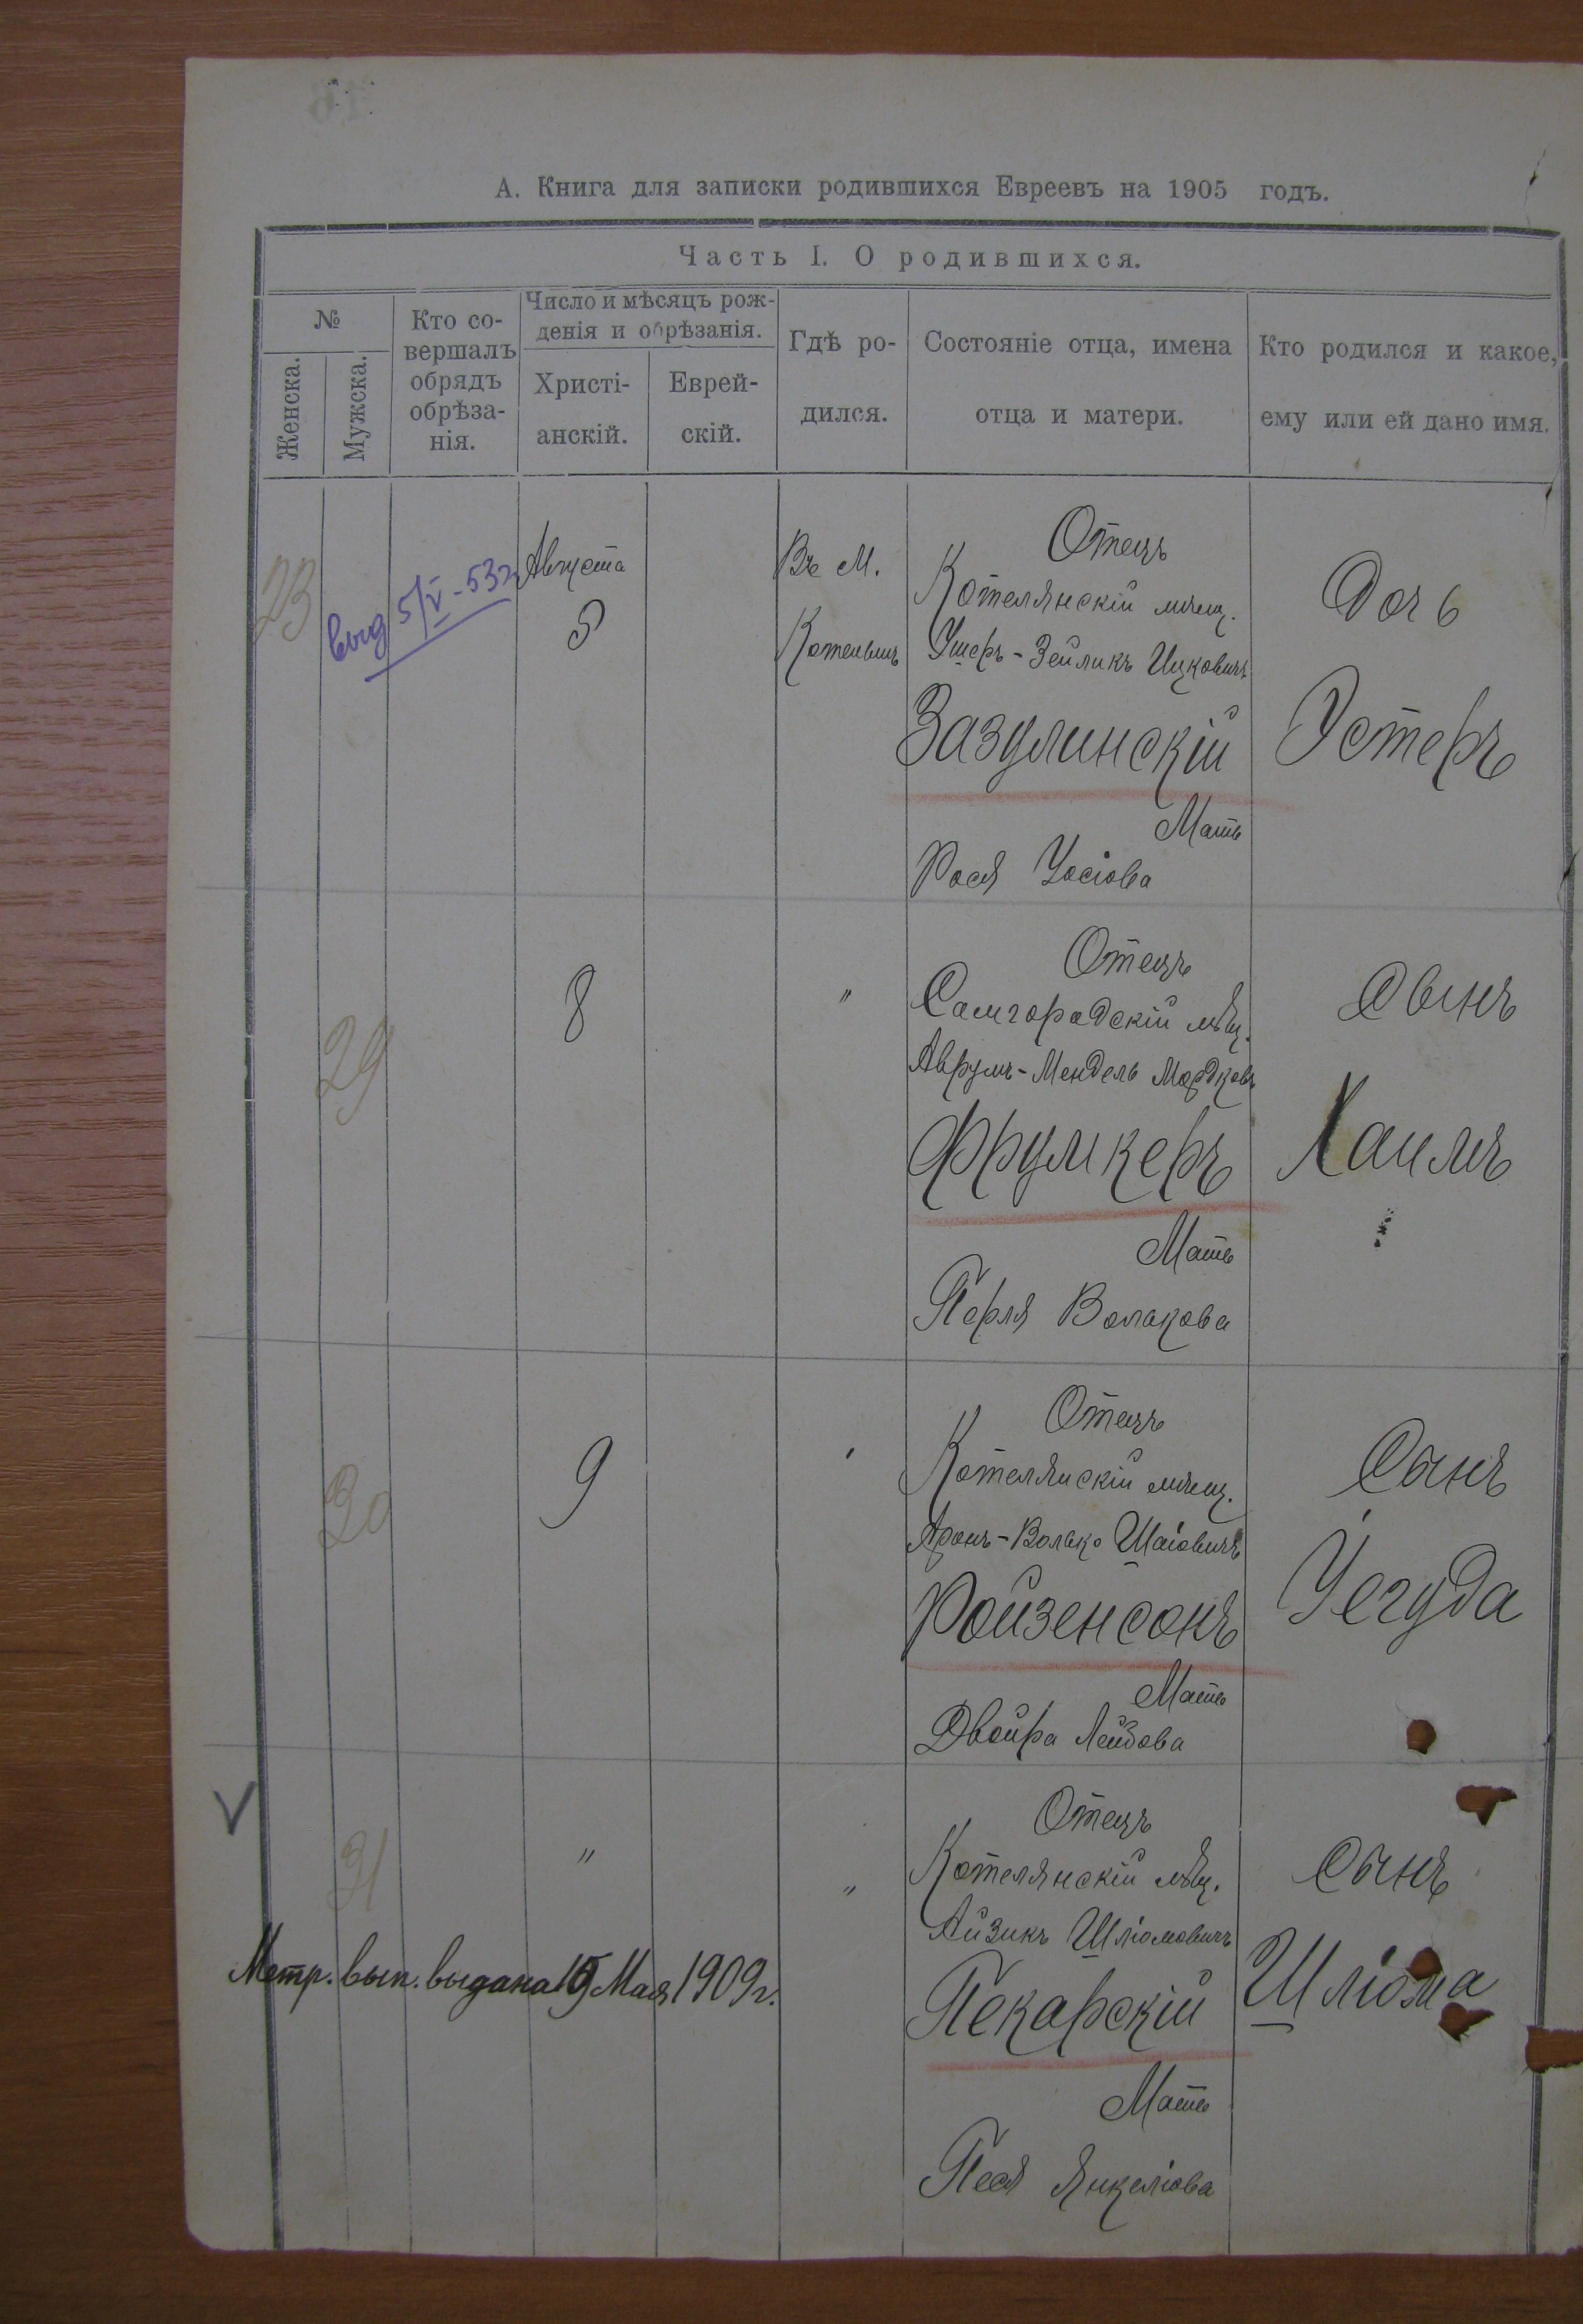 А. Книга для записки родившихся Евреевъ на 1905 годъ.
Часть I. О родившихся.
№
Женска.
Мужска.
Кто со-
вершалъ
обрядъ
обрѣза-
нія.
Число и мѣсяцъ рож-
денія и обрѣзанія.
Христі-
анскій.
Еврей-
скій.
Гдѣ ро-
дился.
Состояніе отца, имена
отца и матери.
Кто родился и какое,
ему или ей дано имя.
23
выд 5/V-53г
Августа
5
Въ м.
Котельнѣ
Отецъ
Котелянскій мѣщ.
Ушеръ-Зейликъ Ицковичъ
Зазулинскій
Мать
Рося Уосіова
Дочь
Устеръ
29
8
"
Отецъ
Самгородскій мѣщ.
Аврумъ-Мендель Мордков
Фрумкеръ
Мать
Перля Волакова
Сынъ
Хаимъ
30
9
Отецъ
Котелянскій мѣщ.
Аронъ-Волько Шаіовичъ
Ройзенсонъ
Мать
Двойра Лейбова
Сынъ
Уегуда
31
"
"
Отецъ
Котелянскій мѣщ.
Айзикъ Шліомовичъ
Пекарскій
Мать
Песя Янкеліова
Сынъ
Шліома
Метр. вып. выдана 15 Мая 1909 г.